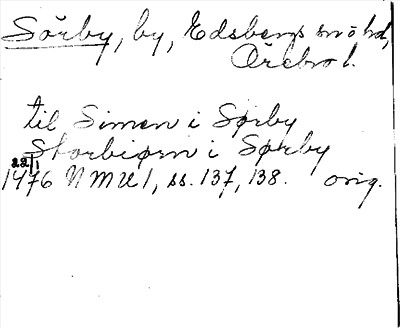 Sörby, by, Edsbergs sn o hd,
Örebro l.
til Simon i Sørby
Storbiørn i Sørby
22/1
1476 NMU 1, ss. 137, 138. orig.